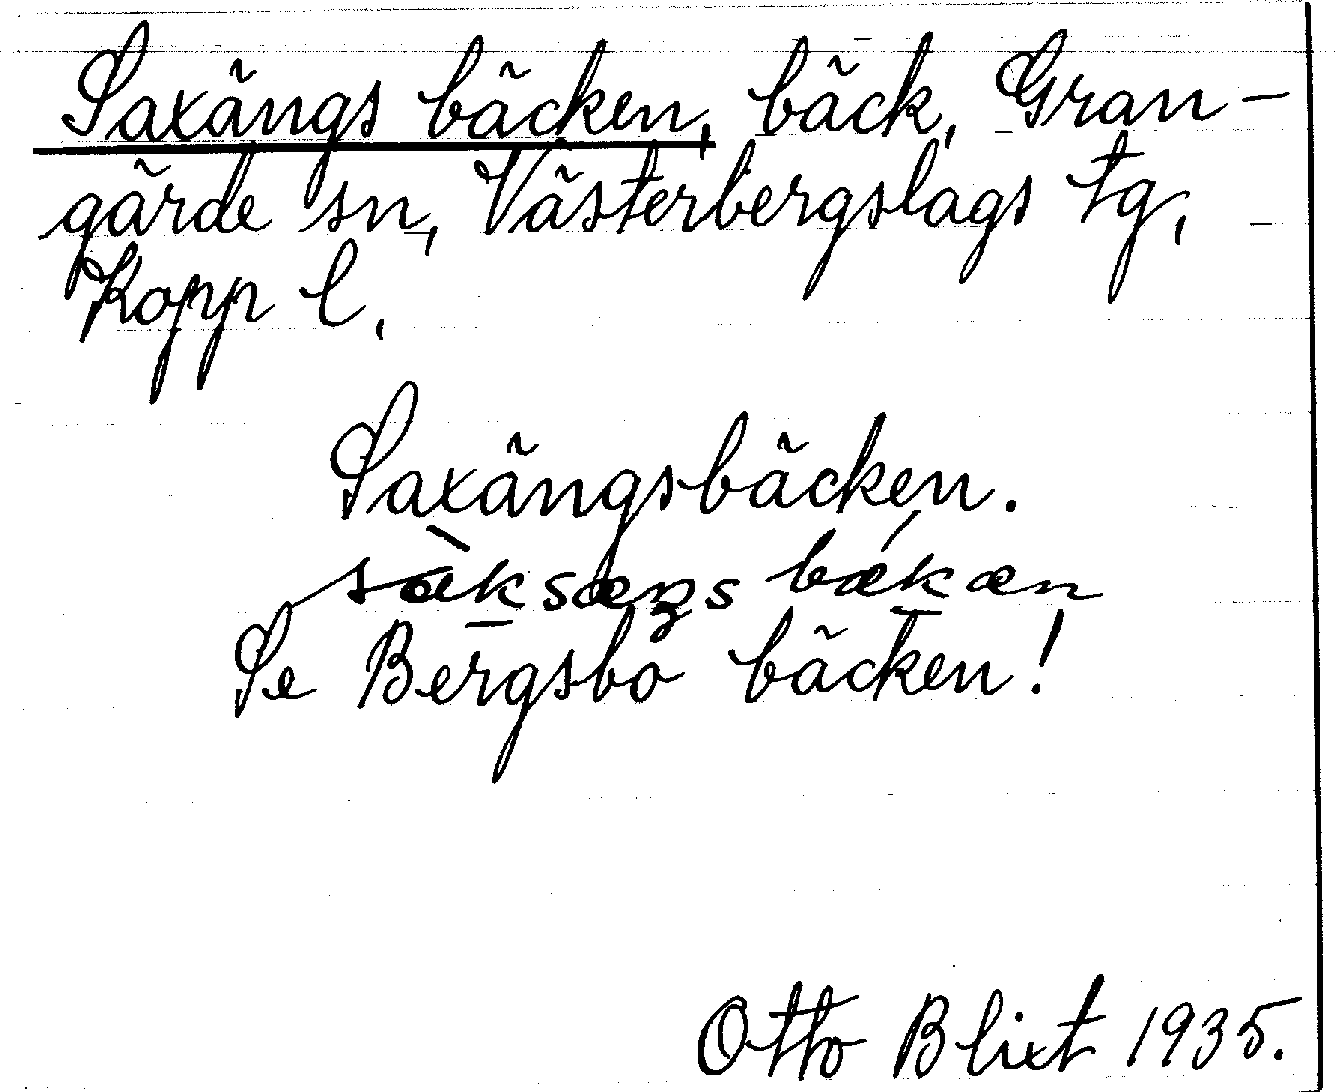 Saxängs bäcken, bäck, Gran-
gärde sn, Västerbergslags tg,
Kopp l.
Saxängsbäcken.
Se Bergsbo bäcken!
Otto Blixt 1935.